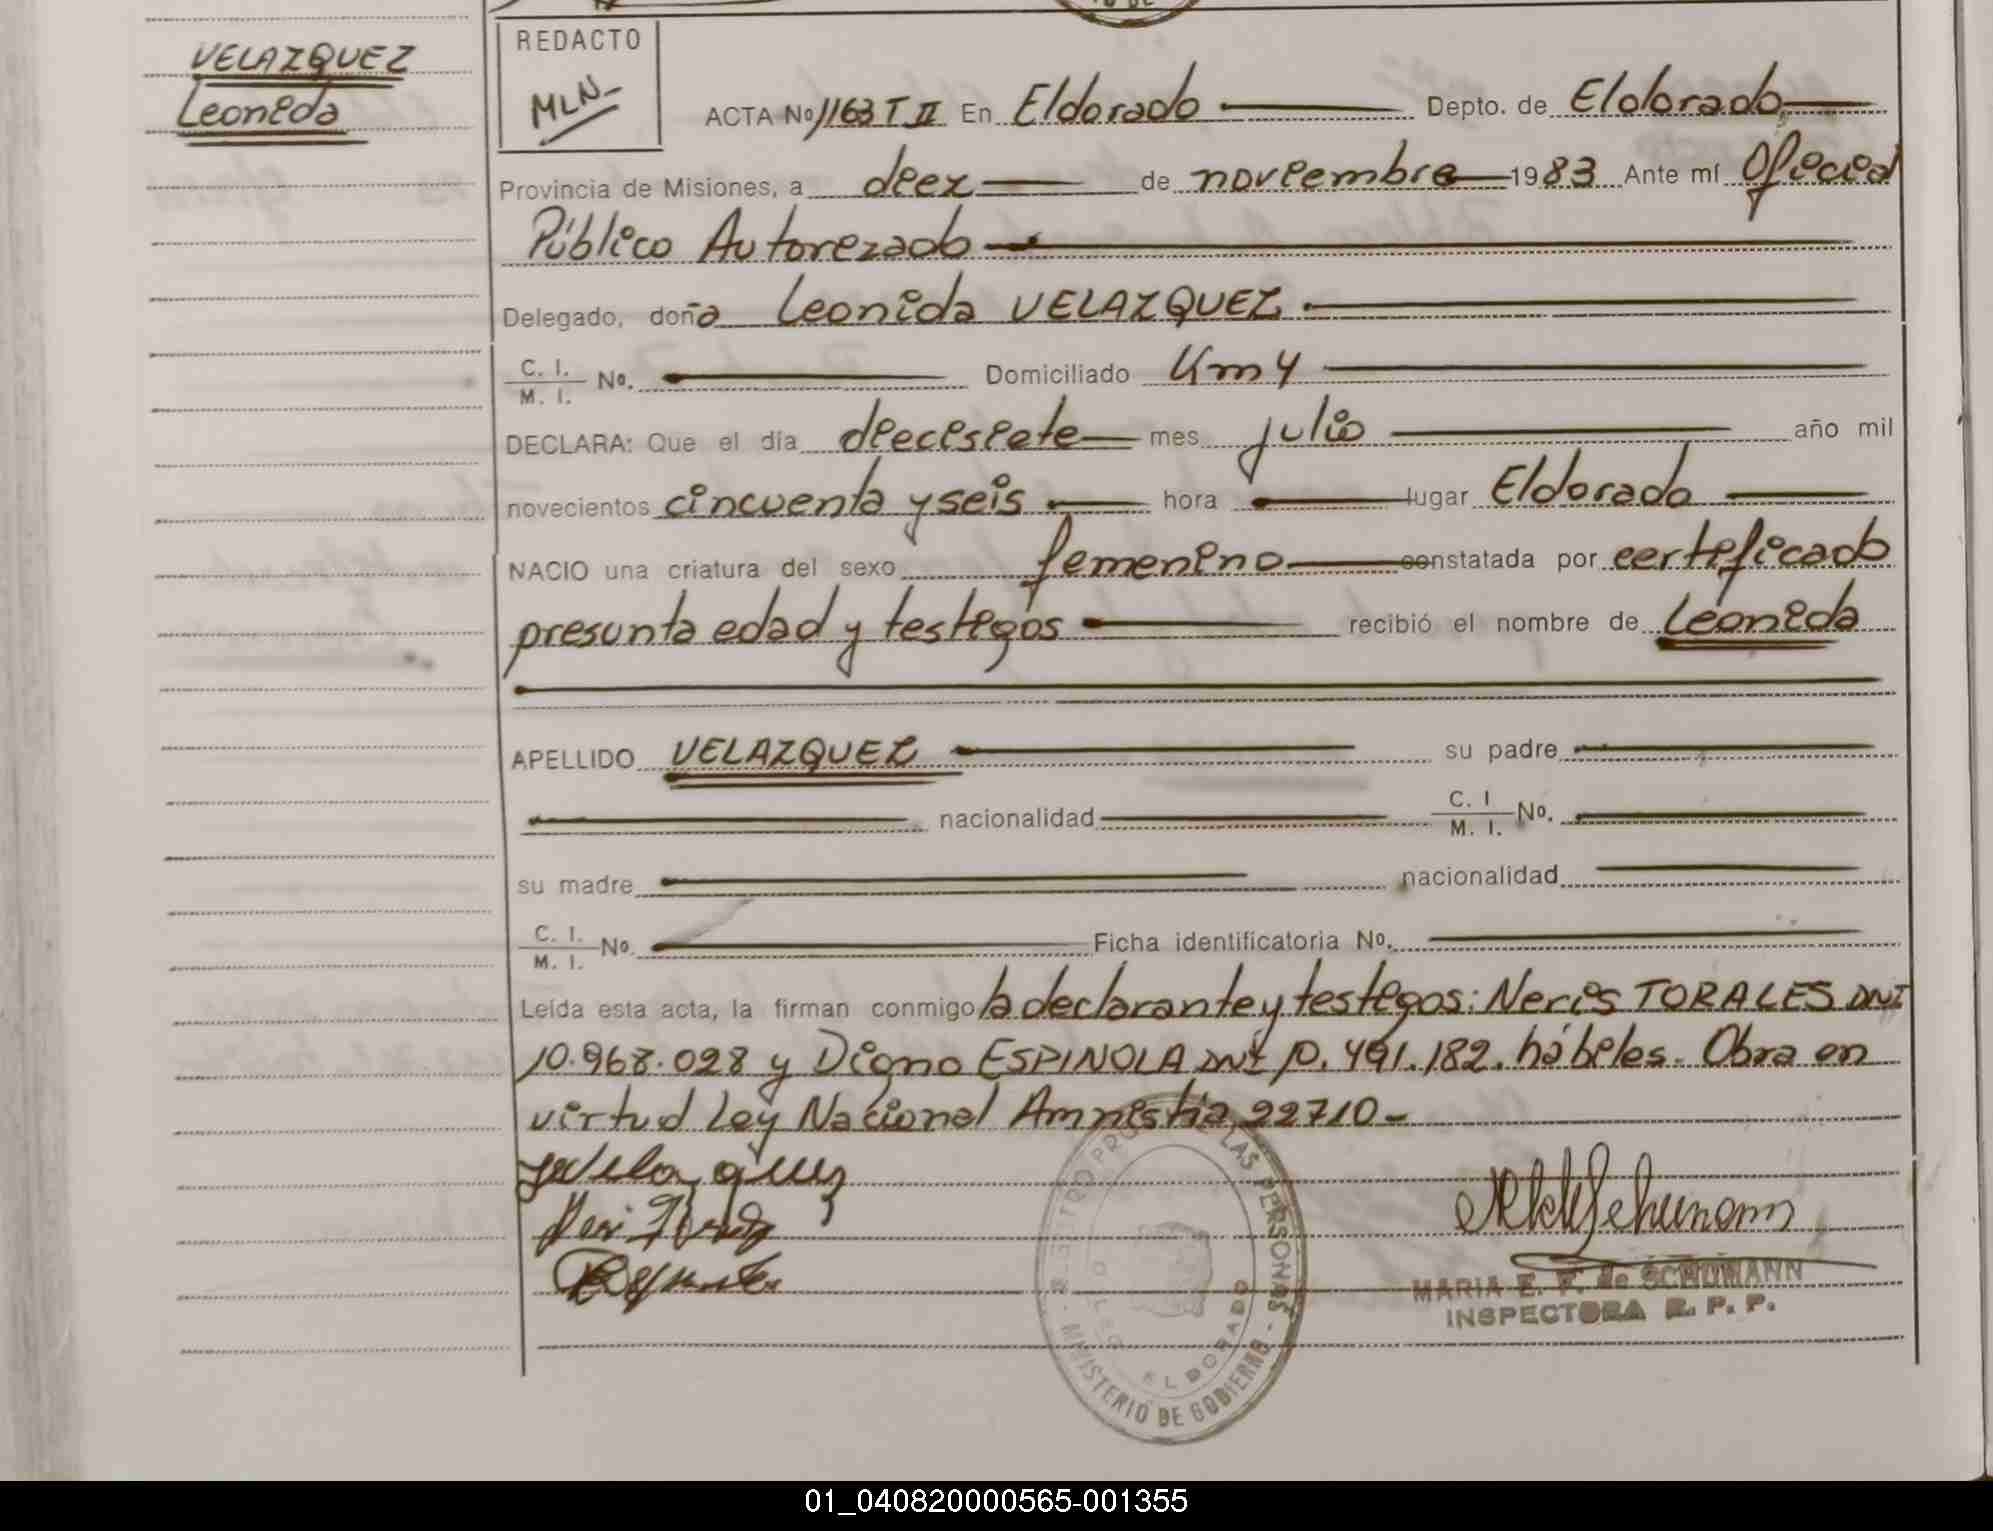 VELAZQUEZ
Leonida
REDACTO
MLN
ACTA No 1163 T II En Eldorado Depto. de Eldorado
Provincia de Misiones, a diez de noviembre 1983 Ante mí Oficial
Público Autorizado
Delegado, doña Leonida VELAZQUEZ
C. I. / M. I. No. Domiciliado Km 4
DECLARA: Que el día diecisiete mes julio año mil
novecientos cincuenta y seis hora lugar Eldorado
NACIO una criatura del sexo femenino constatada por certificado
presunta edad y testigos recibió el nombre de Leonida
APELLIDO VELAZQUEZ su padre
nacionalidad C. I / M. I. No.
su madre nacionalidad
C. I. / M. I. No. Ficha identificatoria No.
Leída esta acta, la firman conmigo la declarante y testigos: Neris TORALES DNI
10.968.028 y Digno ESPINOLA DNI 10.491.182. hábiles. Obra en
virtud Ley Nacional Amnistía 22710-
REGISTRO PROV. DE LAS PERSONAS - MINISTERIO DE GOBIERNO -
ELDORADO
MARIA E. F. de SCHUMANN
INSPECTORA R. P. P.
01_040820000565-001355